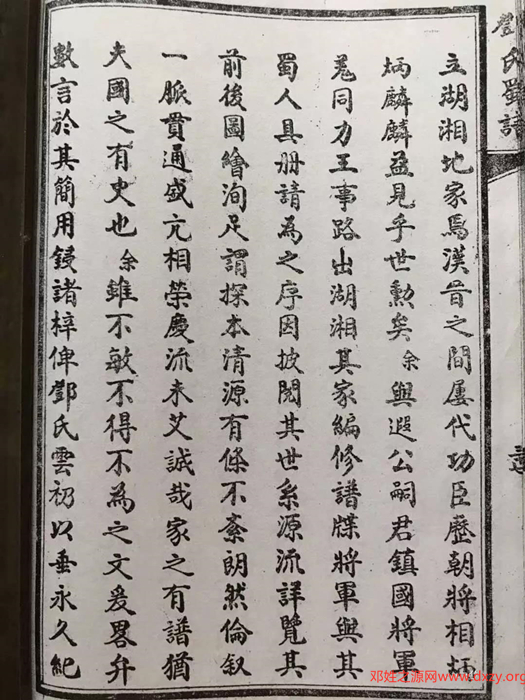 鄧氏蜀譜
立湖湘地家焉漢晉之間屢代功臣歷朝將相炳
炳麟麟益見乎世勲矣余與遐公嗣君鎮國將軍
羌同力王事路出湖湘其家編修譜牒將軍與其
蜀人具册請為之序因披閱其世系源流詳覽其
前後圖繪洵足謂探本清源有條不紊朗然倫叙
一脈貫通盛亢相榮慶流未艾誠哉家之有譜猶
夫國之有史也余雖不敏不得不為之文爰畧弁
數言於其簡用鋟諸梓俾鄧氏雲礽以垂永久紀
邓姓之源网www.dxzy.org